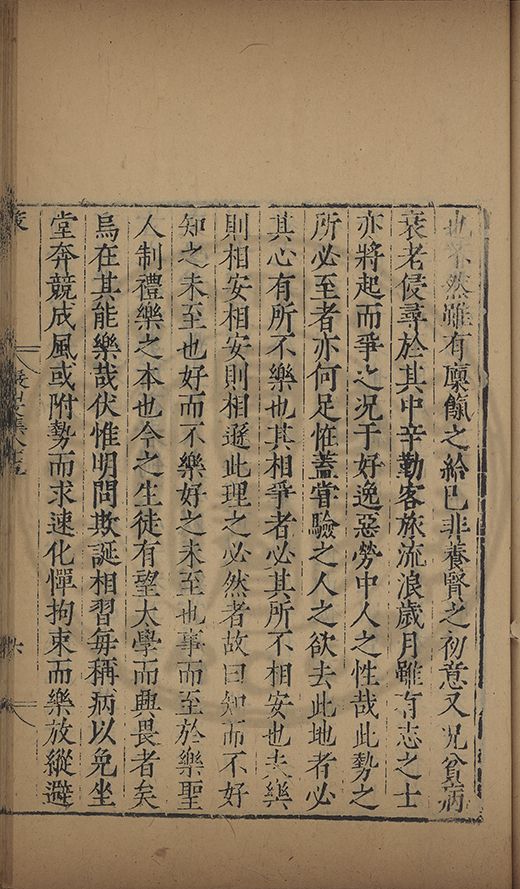 也不然雖有廩餼之給已非養賢之初意又况貧病
衰老侵尋於其中辛勤客旅流浪歲月雖有志之士
亦將起而爭之况于好逸惡勞中人之性哉此勢之
所必至者亦何足恠蓋甞驗之人之欲去此地者必
其心有所不樂也其相爭者必其所不相安也夫樂
則相安相安則相遜此理之必然者故曰知而不好
知之未至也好而不樂好之未至也事而至於樂聖
人制禮樂之本也今之生徒有望太學而興畏者矣
烏在其能樂哉伏惟明問欺誕相習每稱病以免坐
堂奔競成風或附勢而求速化憚拘束而樂放縱避
策
六